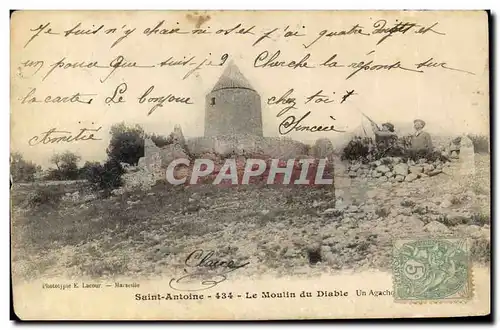 Je Suis n'y chair ni os et j'ai quatre doigts et
un pouce Que suis-je? Cherche la réponse sur
la carte. Le bonjour chez toi
Amitié Sincère
CAPHILEX
Claire
Phototypie E. Lacour. — Marseille
Saint-Antoine - 434 - Le Moulin du Diable Un Agach
5